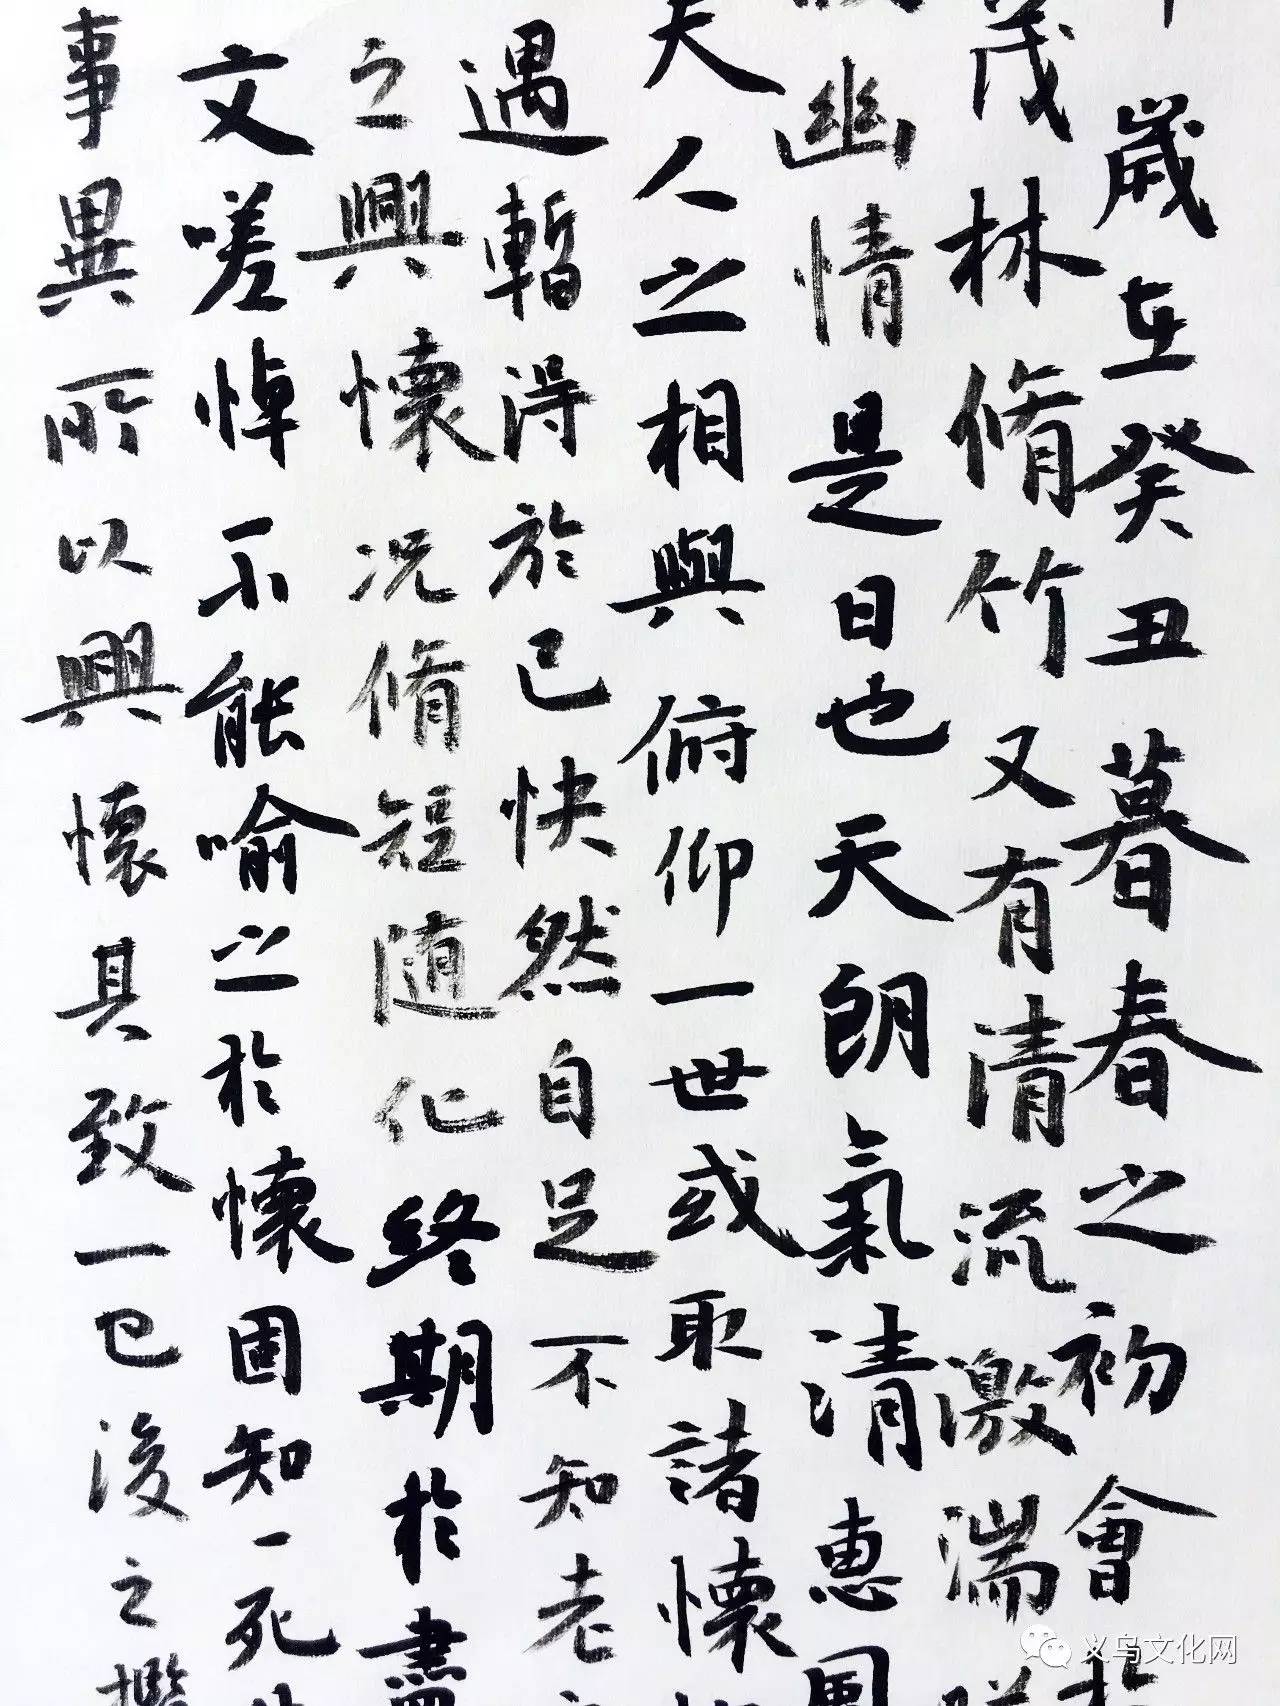 歲在癸丑暮春之初會於
茂林脩竹又有清流激湍
幽情是日也天朗氣清惠風
夫人之相與俯仰一世或取諸懷
遇暫得於己快然自足不知老
之興懷況脩短隨化終期於盡
文嗟悼不能喻之於懷固知一死
事異所以興懷其致一也後之
义乌文化网